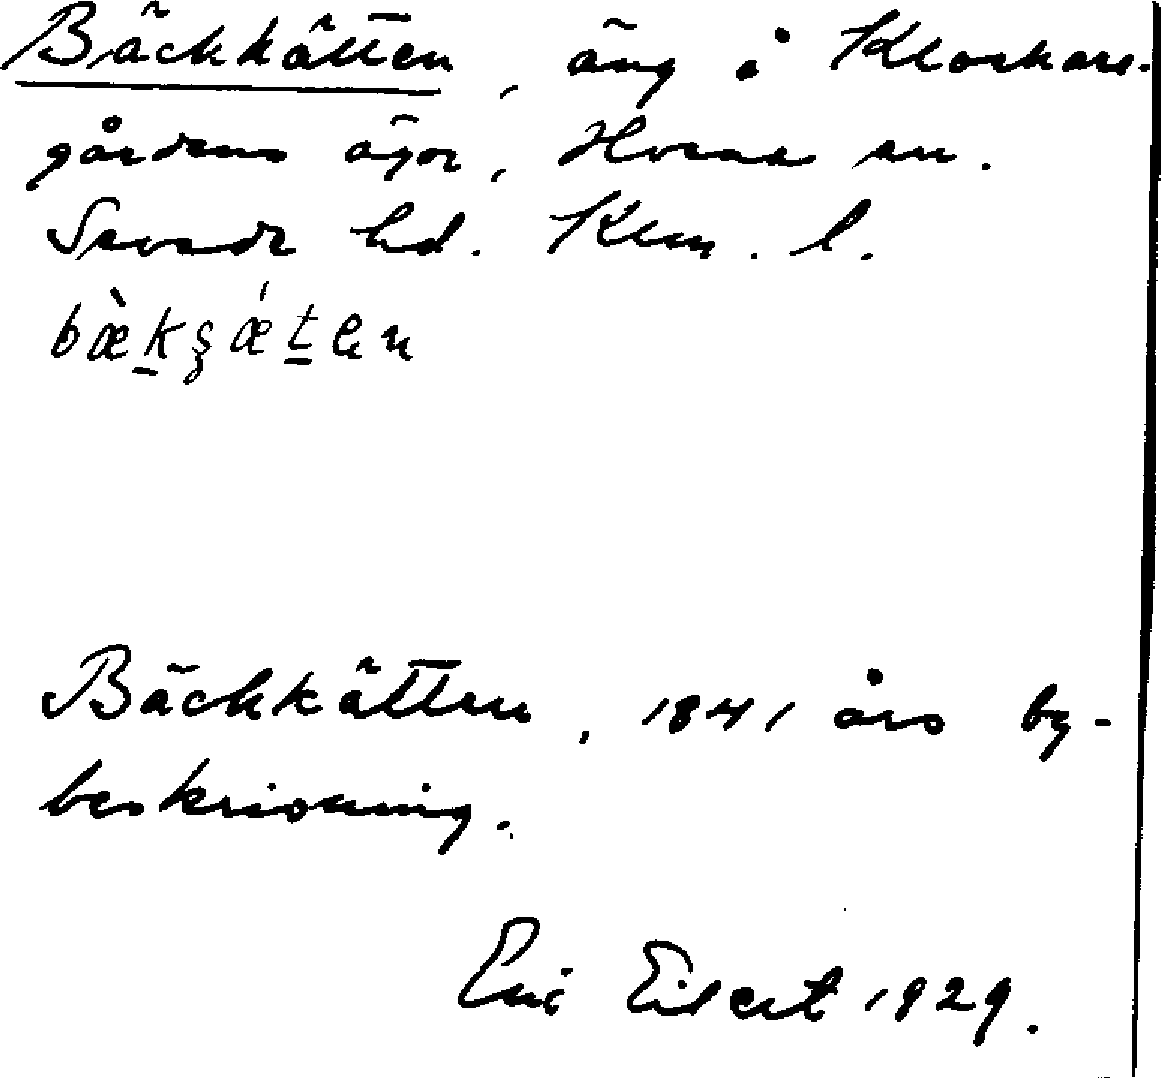 Bäckkätten, äng i Klockare-
gårdens ägor, Hvena sn.
Sevede hd. Klm. l.
bæ̀k̲ʂǽt̲en
Bäckkätten, 1841 års by-
beskrivning.
Eric Eilert 1929.